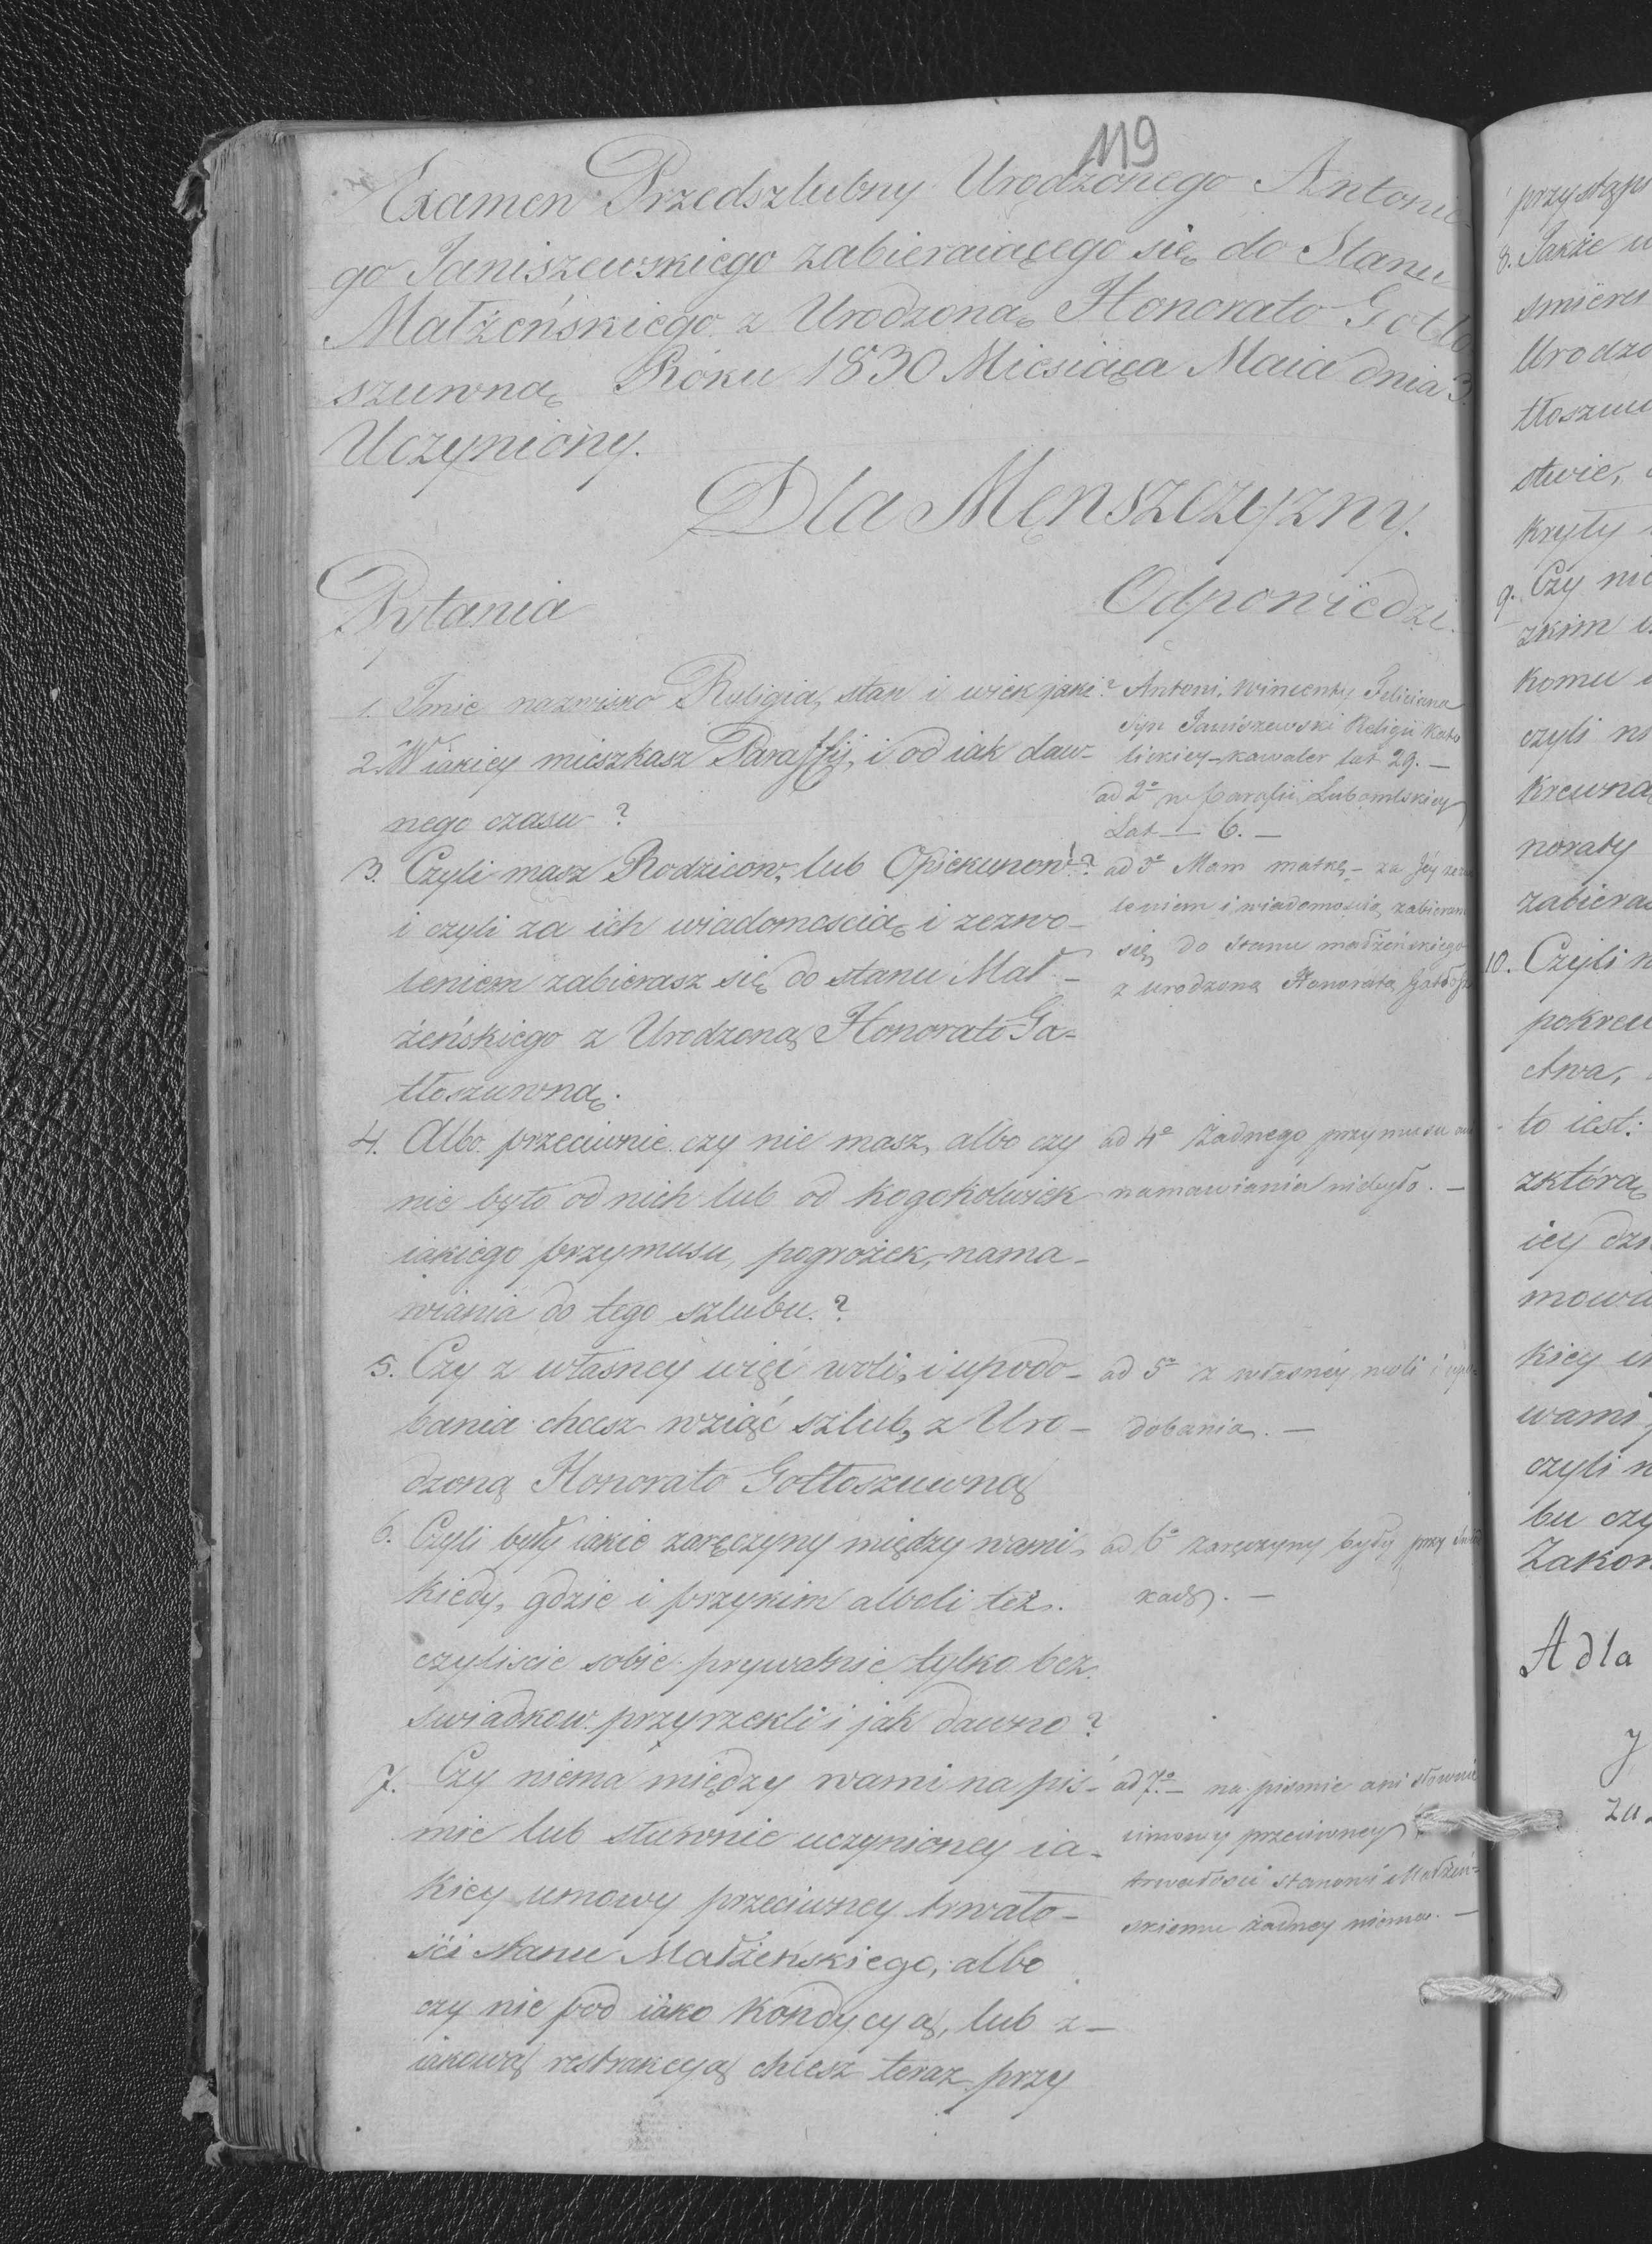 119
Examen Przedszlubny Urodzonego Antonie-
go Janiszewskiego zabieraiącego się do Stanu
Małżeńskiego z Urodzoną Honorato Gotło-
szuwną Roku 1830 Miesiąca Maia dnia 3.
Uczyniony.
Dla Męnszczyzny.
Pytania
Odpowiedzi.
1. Imie nazwisko Religia, stan i wiek jaki?
2 W iakiey mieszkasz Paraffii, i od iak daw-
nego czasu?
3. Czyli masz Rodzicow, lub Opiekunow?
i czyli za ich wiadomoscią i zezwo-
leniem zabierasz się do stanu Mał-
żeńskiego z Urodzoną Honorato Ga-
tłoszuwną.
4. Albo przeciwnie czy nie masz, albo czy
nie było od nich lub od kogokolwiek
iakiego przymusu, pogrożek, nama-
wiania do tego szlubu?
5. Czy z własney więć woli, i upodo-
bania chcesz wziąć szlub, z Uro-
dzoną Honorato Gotłoszuwną
6. Czyli były iakie zaręczyny między wami,
kiedy, gdzie i przykim albeli też
czyliscie sobie prywatnie tylko bez
swiadkow przyrzekli i jak dawno?
7. Czy niema między wami na pis-
mie lub słuwnie uczynioney ia-
kiey umowy przeciwney trwało-
ści stanu Małżeńskiego, albo
czy nie pod iako Kondycyą, lub z-
iakową restrakcyą chcesz teraz przy
Antoni, Wincenty, Feliciana
Syn Janiszewski Religii Kato
lickiey - kawaler lat 29. -
ad 2o w parafii Lubomlskiey
Lat - 6. -
ad 3o Mam matkę - za Jéy
leniem i wiadomością zabieram
się do stanu małżeńskiego
z urodzoną Honoratą
ad 4o żadnego przymusu
namawiania niebyło. -
ad 5o z własnéy woli i
dobania. -
ad 6o zaręczyny były przy
kach. -
ad 7o - na pismie ani słownie
umowy przeciwney
trwałosci stanowi Małżeń-
skiemu żadney niema. -
przystąp
8. Jakże
smierci
Urodzo
tłoszuw
stwie,
kryty
9. Czy nie
zkim
komu
czyli
krewna
noraty
zabieras
10. Czyli
pokrew
ctwa,
to iest:
zktórą
iey
mowa
kiey
wami
czyli
bu czy
Zakon
A dla